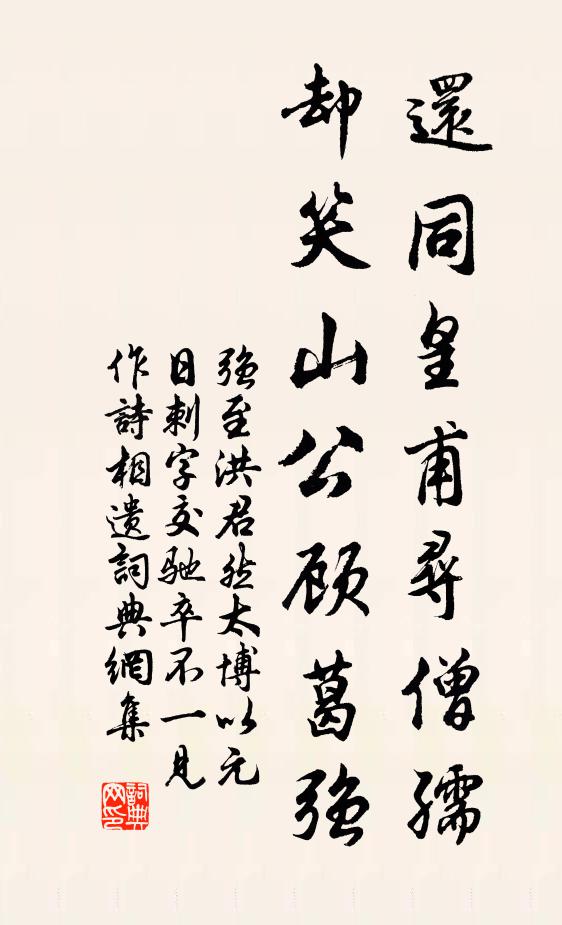 還同皇甫尋僧孺
却笑山公顧葛強
強至洪君然太博以元
日刺字交馳卒不一見
作詩相遺詞典網集
詞典
网印